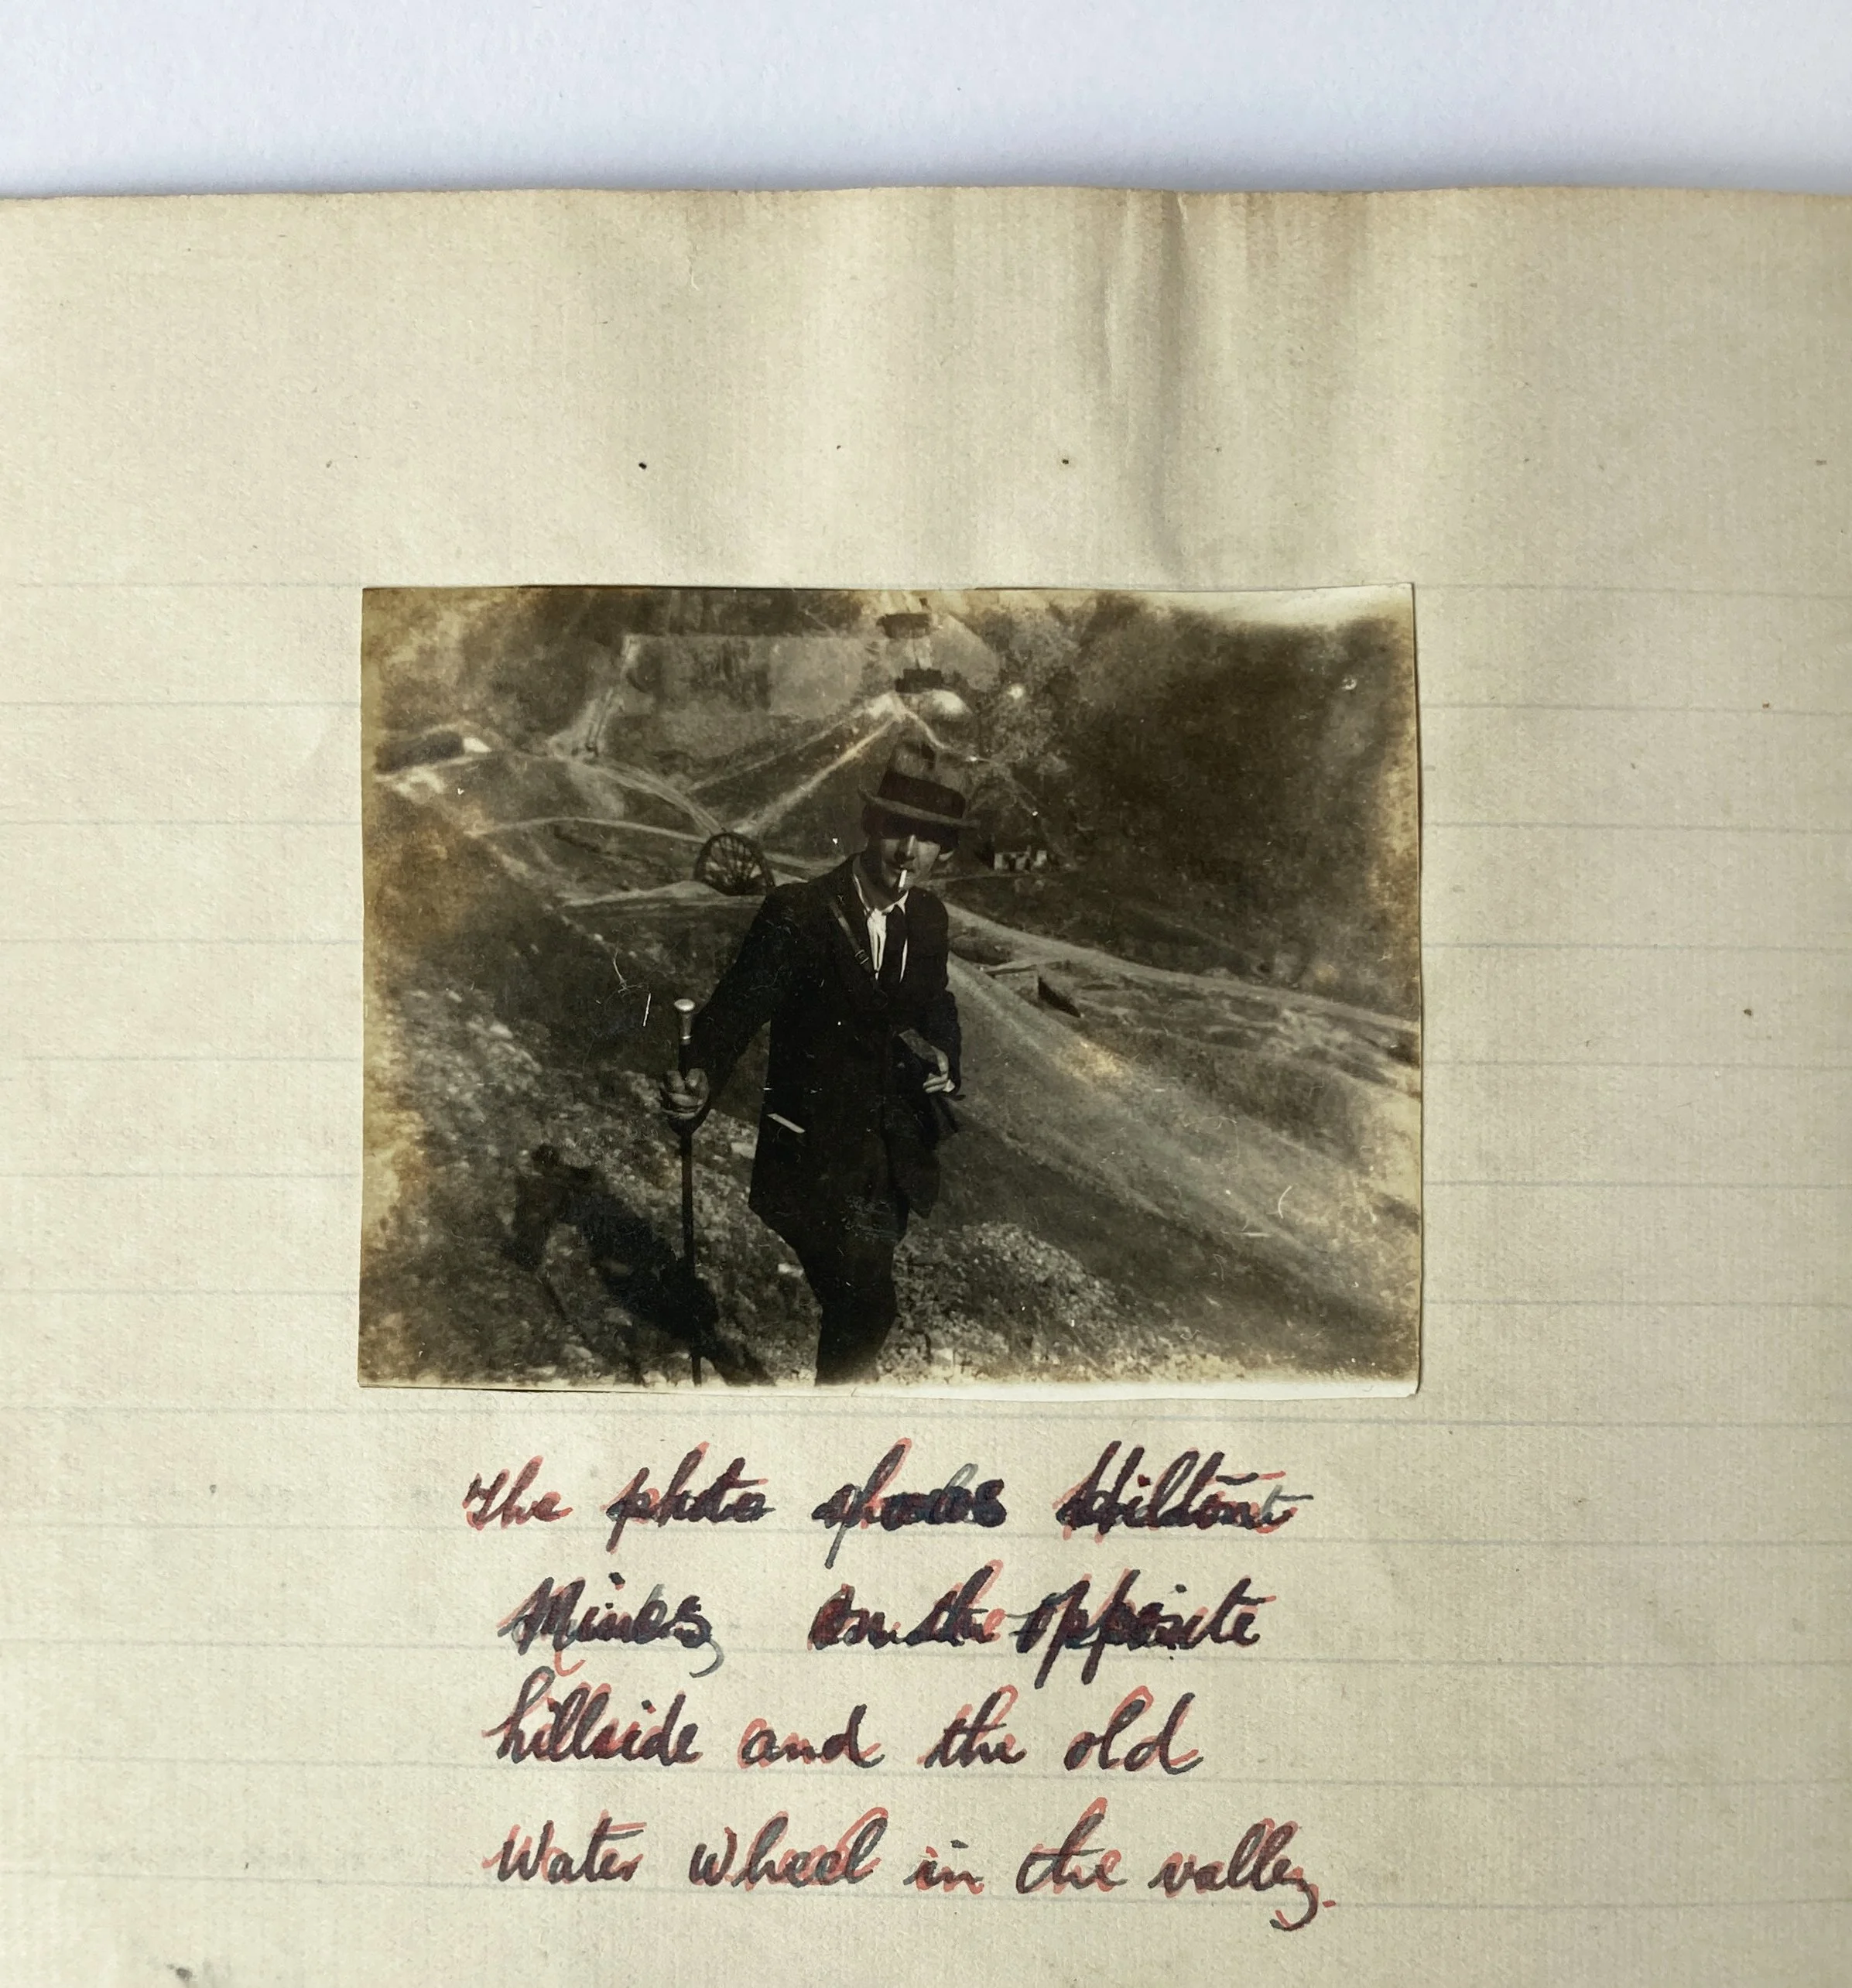 The photo shows Hilton
Mines, on the opposite
hillside and the old
Water wheel in the valley.